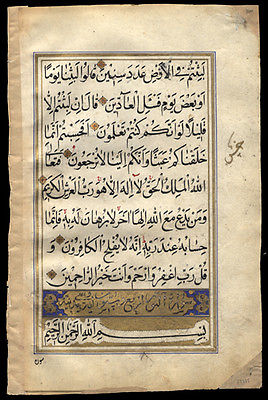 لَبِثْتُمْ فِي الْأَرْضِ عَدَدَ سِنِينَ قَالُوا لَبِثْنَا يَوْمًا
أَوْ بَعْضَ يَوْمٍ فَسْئَلِ الْعَادِّينَ قَالَ إِنْ لَبِثْتُمْ إِلَّا
قَلِيلًا لَوْ أَنَّكُمْ كُنْتُمْ تَعْلَمُونَ أَفَحَسِبْتُمْ أَنَّمَا
خَلَقْنَاكُمْ عَبَثًا وَأَنَّكُمْ إِلَيْنَا لَا تُرْجَعُونَ فَتَعَالَى
اللَّهُ الْمَلِكُ الْحَقُّ لَا إِلَهَ إِلَّا هُوَ رَبُّ الْعَرْشِ الْكَرِيمِ
وَمَنْ يَدْعُ مَعَ اللَّهِ إِلَهًا آخَرَ لَا بُرْهَانَ لَهُ بِهِ فَإِنَّمَا
حِسَابُهُ عِنْدَ رَبِّهِ إِنَّهُ لَا يُفْلِحُ الْكَافِرُونَ وَ
قُلْ رَبِّ اغْفِرْ وَارْحَمْ وَأَنْتَ خَيْرُ الرَّاحِمِينَ
بِسْمِ اللَّهِ الرَّحْمَنِ الرَّحِيمِ